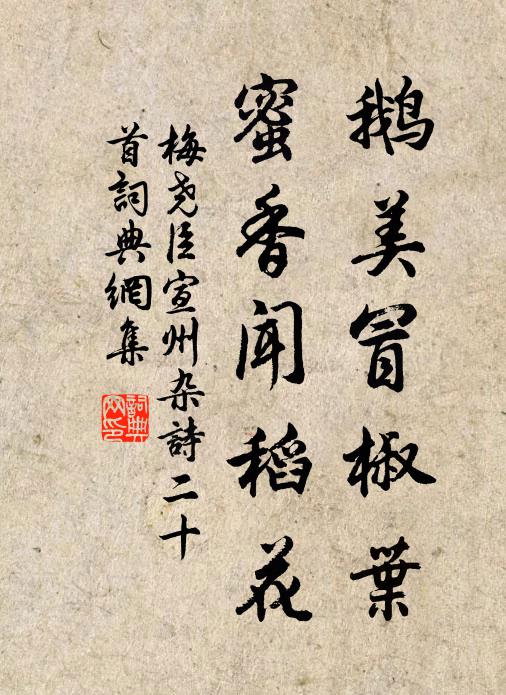 鹅美冒椒葉
蜜香闻稻花
梅尧臣宣州杂詩二十
首詞典網集
詞典網印